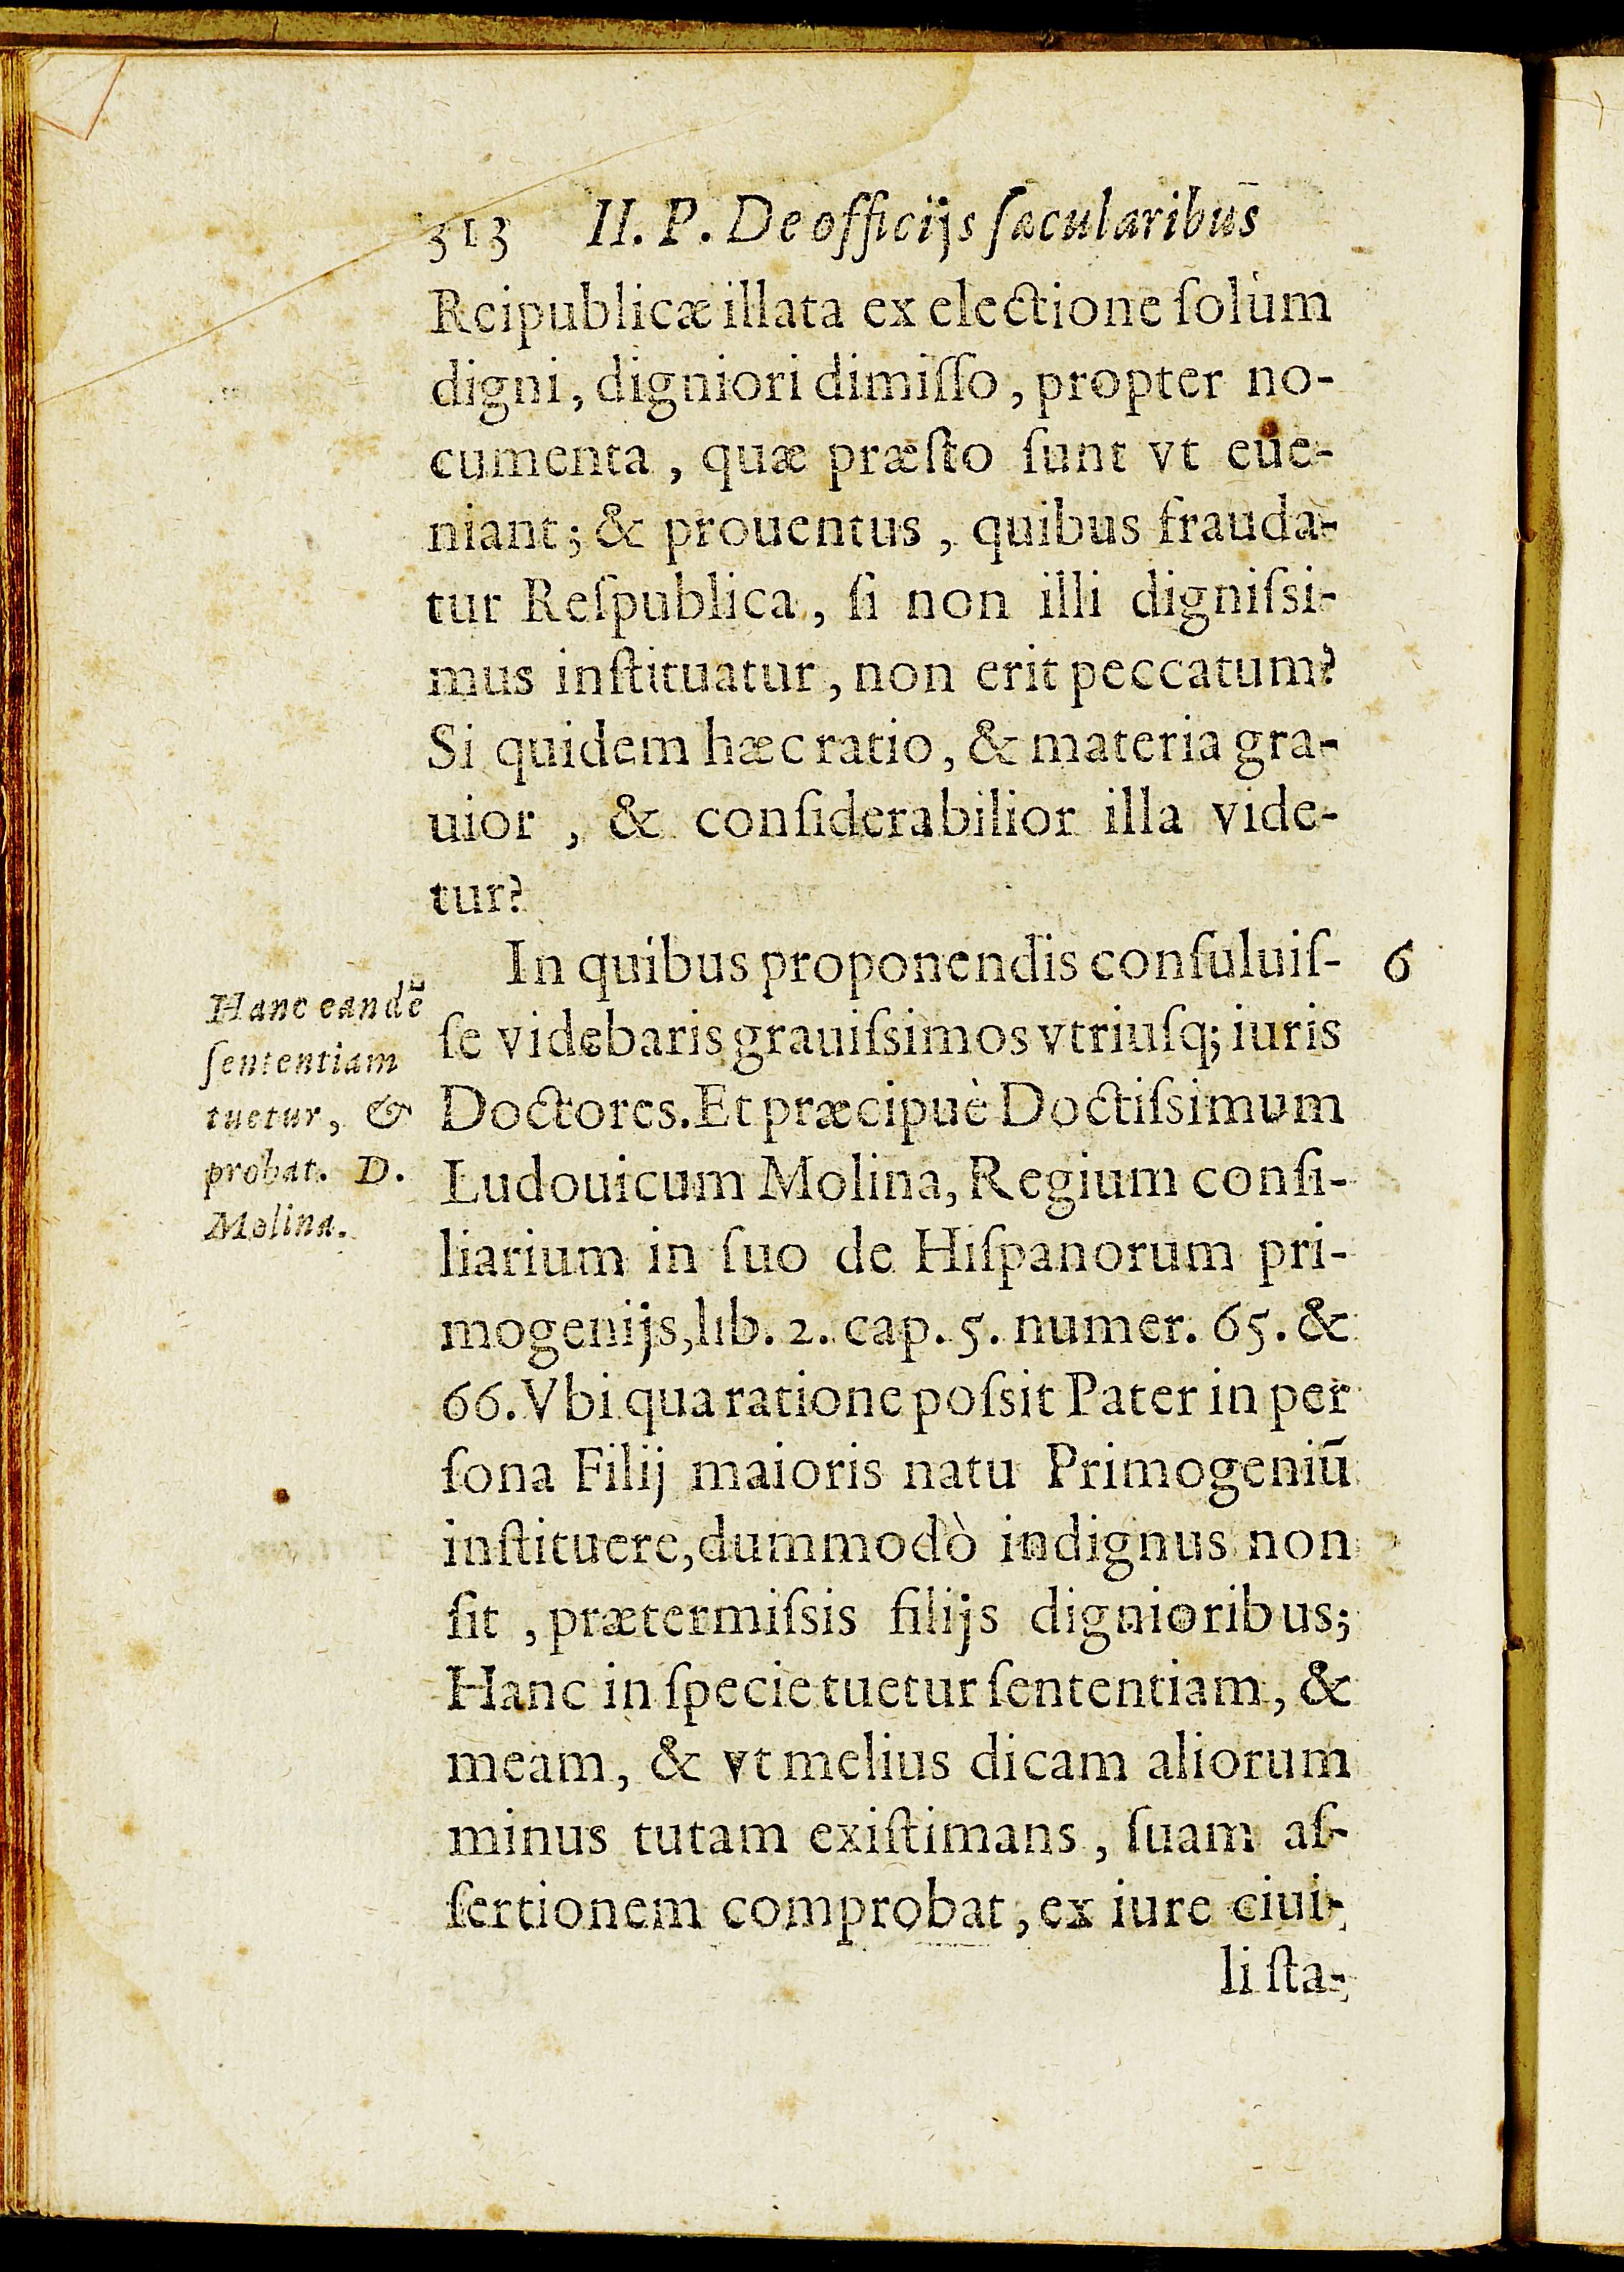 313 II. P. De officijs sæcularibus
Reipublicæ illata ex electione ſolùm
digni, digniori dimiſſo, propter no-
cumenta, quæ præſto ſunt vt eue-
niant; & prouentus, quibus frauda-
tur Reſpublica, ſi non illi digniſsi-
mus inſtituatur, non erit peccatum?
Si quidem hæc ratio, & materia gra-
uior, & conſiderabilior illa vide-
tur?
In quibus proponendis conſuluiſ- 6
ſe videbaris grauiſsimos vtriuſq; iuris
Doctores. Et præcipuè Doctiſsimum
Ludouicum Molina, Regium conſi-
liarium in ſuo de Hiſpanorum pri-
mogenijs, lib. 2. cap. 5. numer. 65. &
66. Vbi qua ratione poſsit Pater in per
ſona Filij maioris natu Primogeniū
inſtituere, dummodò indignus non
ſit, prætermiſsis filijs dignioribus;
Hanc in ſpecie tuetur ſententiam, &
meam, & vt melius dicam aliorum
minus tutam exiſtimans, ſuam aſ-
ſertionem comprobat, ex iure ciui-
li ſta-
Hanc eandē
ſententiam
tuetur, &
probat. D.
Molina.